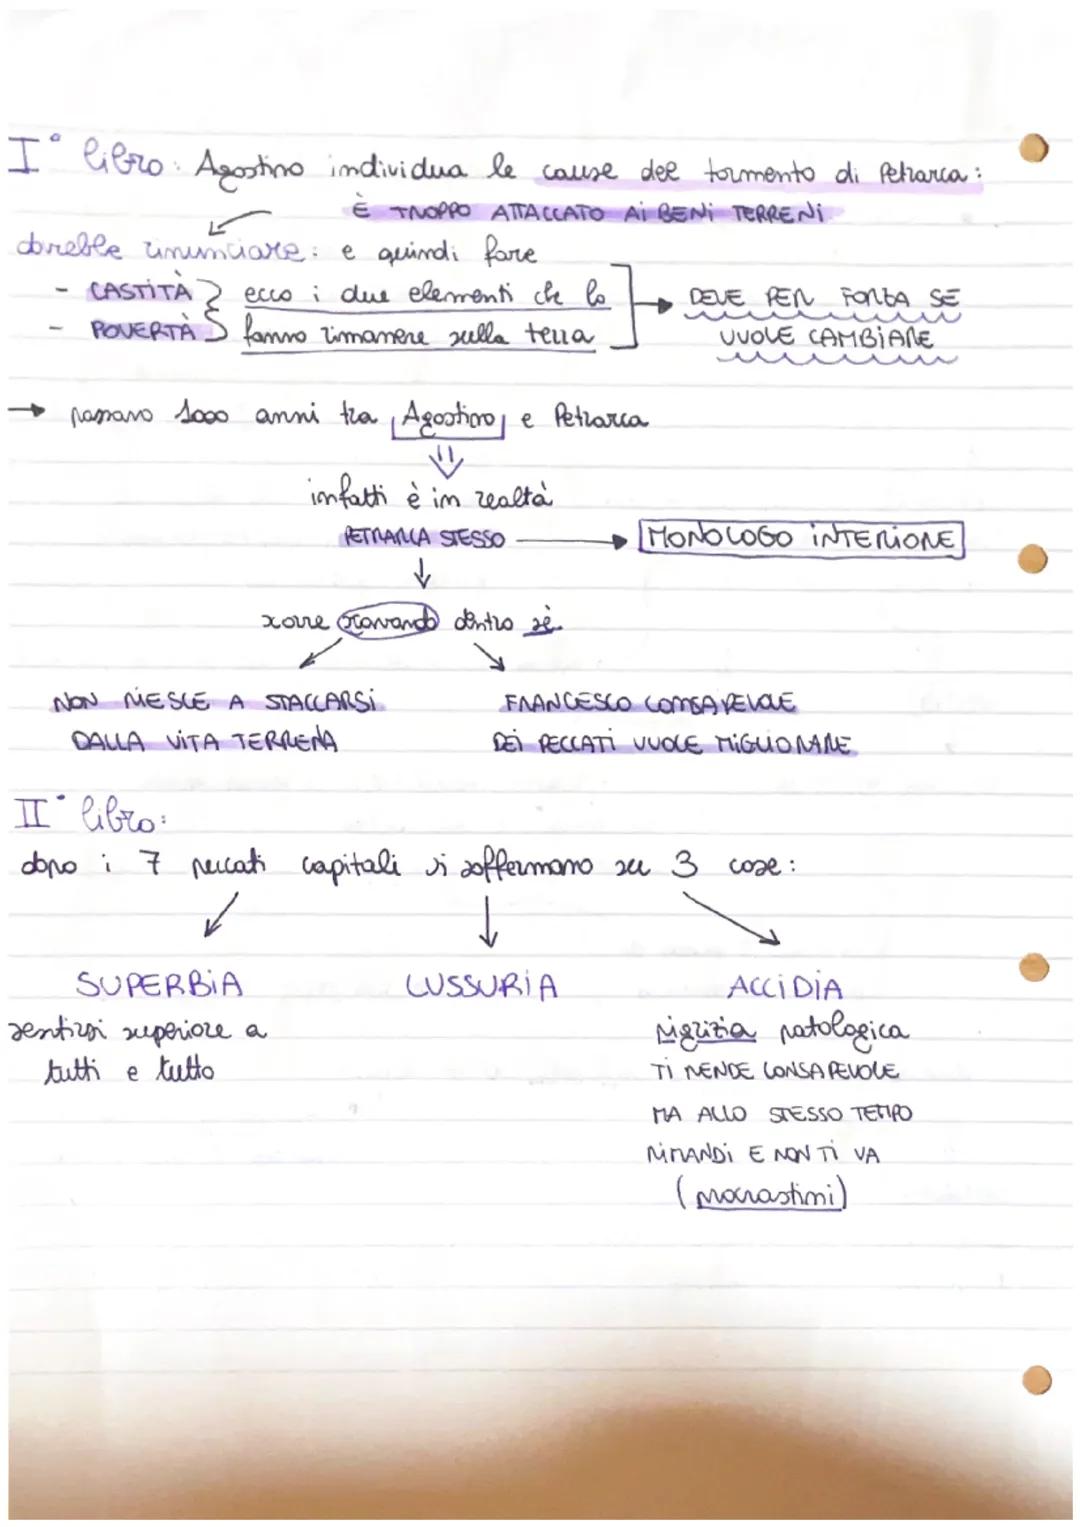 I° libro: Agostino individua le cause del tormento di Petrarca:
È TROPPO ATTACCATO AI BENI TERRENI
dovrebbe rinunciare: e quindi fare
- CASTITÀ } ecco i due elementi che lo → DEVE PER FORZA SE
- POVERTÀ } fanno rimanere sulla terra VUOLE CAMBIARE
→ passano 1000 anni tra Agostino e Petrarca
infatti è in realtà
PETRARCA STESSO → MONOLOGO INTERIORE
↓
scavando dentro sè
NON RIESCE A STACCARSI FRANCESCO CONSAPEVOLE
DALLA VITA TERRENA DEI PECCATI VUOLE MIGLIORARE
II° libro:
dopo i 7 peccati capitali si soffermano su 3 cose:
SUPERBIA LUSSURIA ACCIDIA
sentirsi superiore a pigrizia patologica
tutti e tutto TI RENDE CONSAPEVOLE
MA ALLO STESSO TEMPO
RIMANDI E NON TI VA
(procrastini)